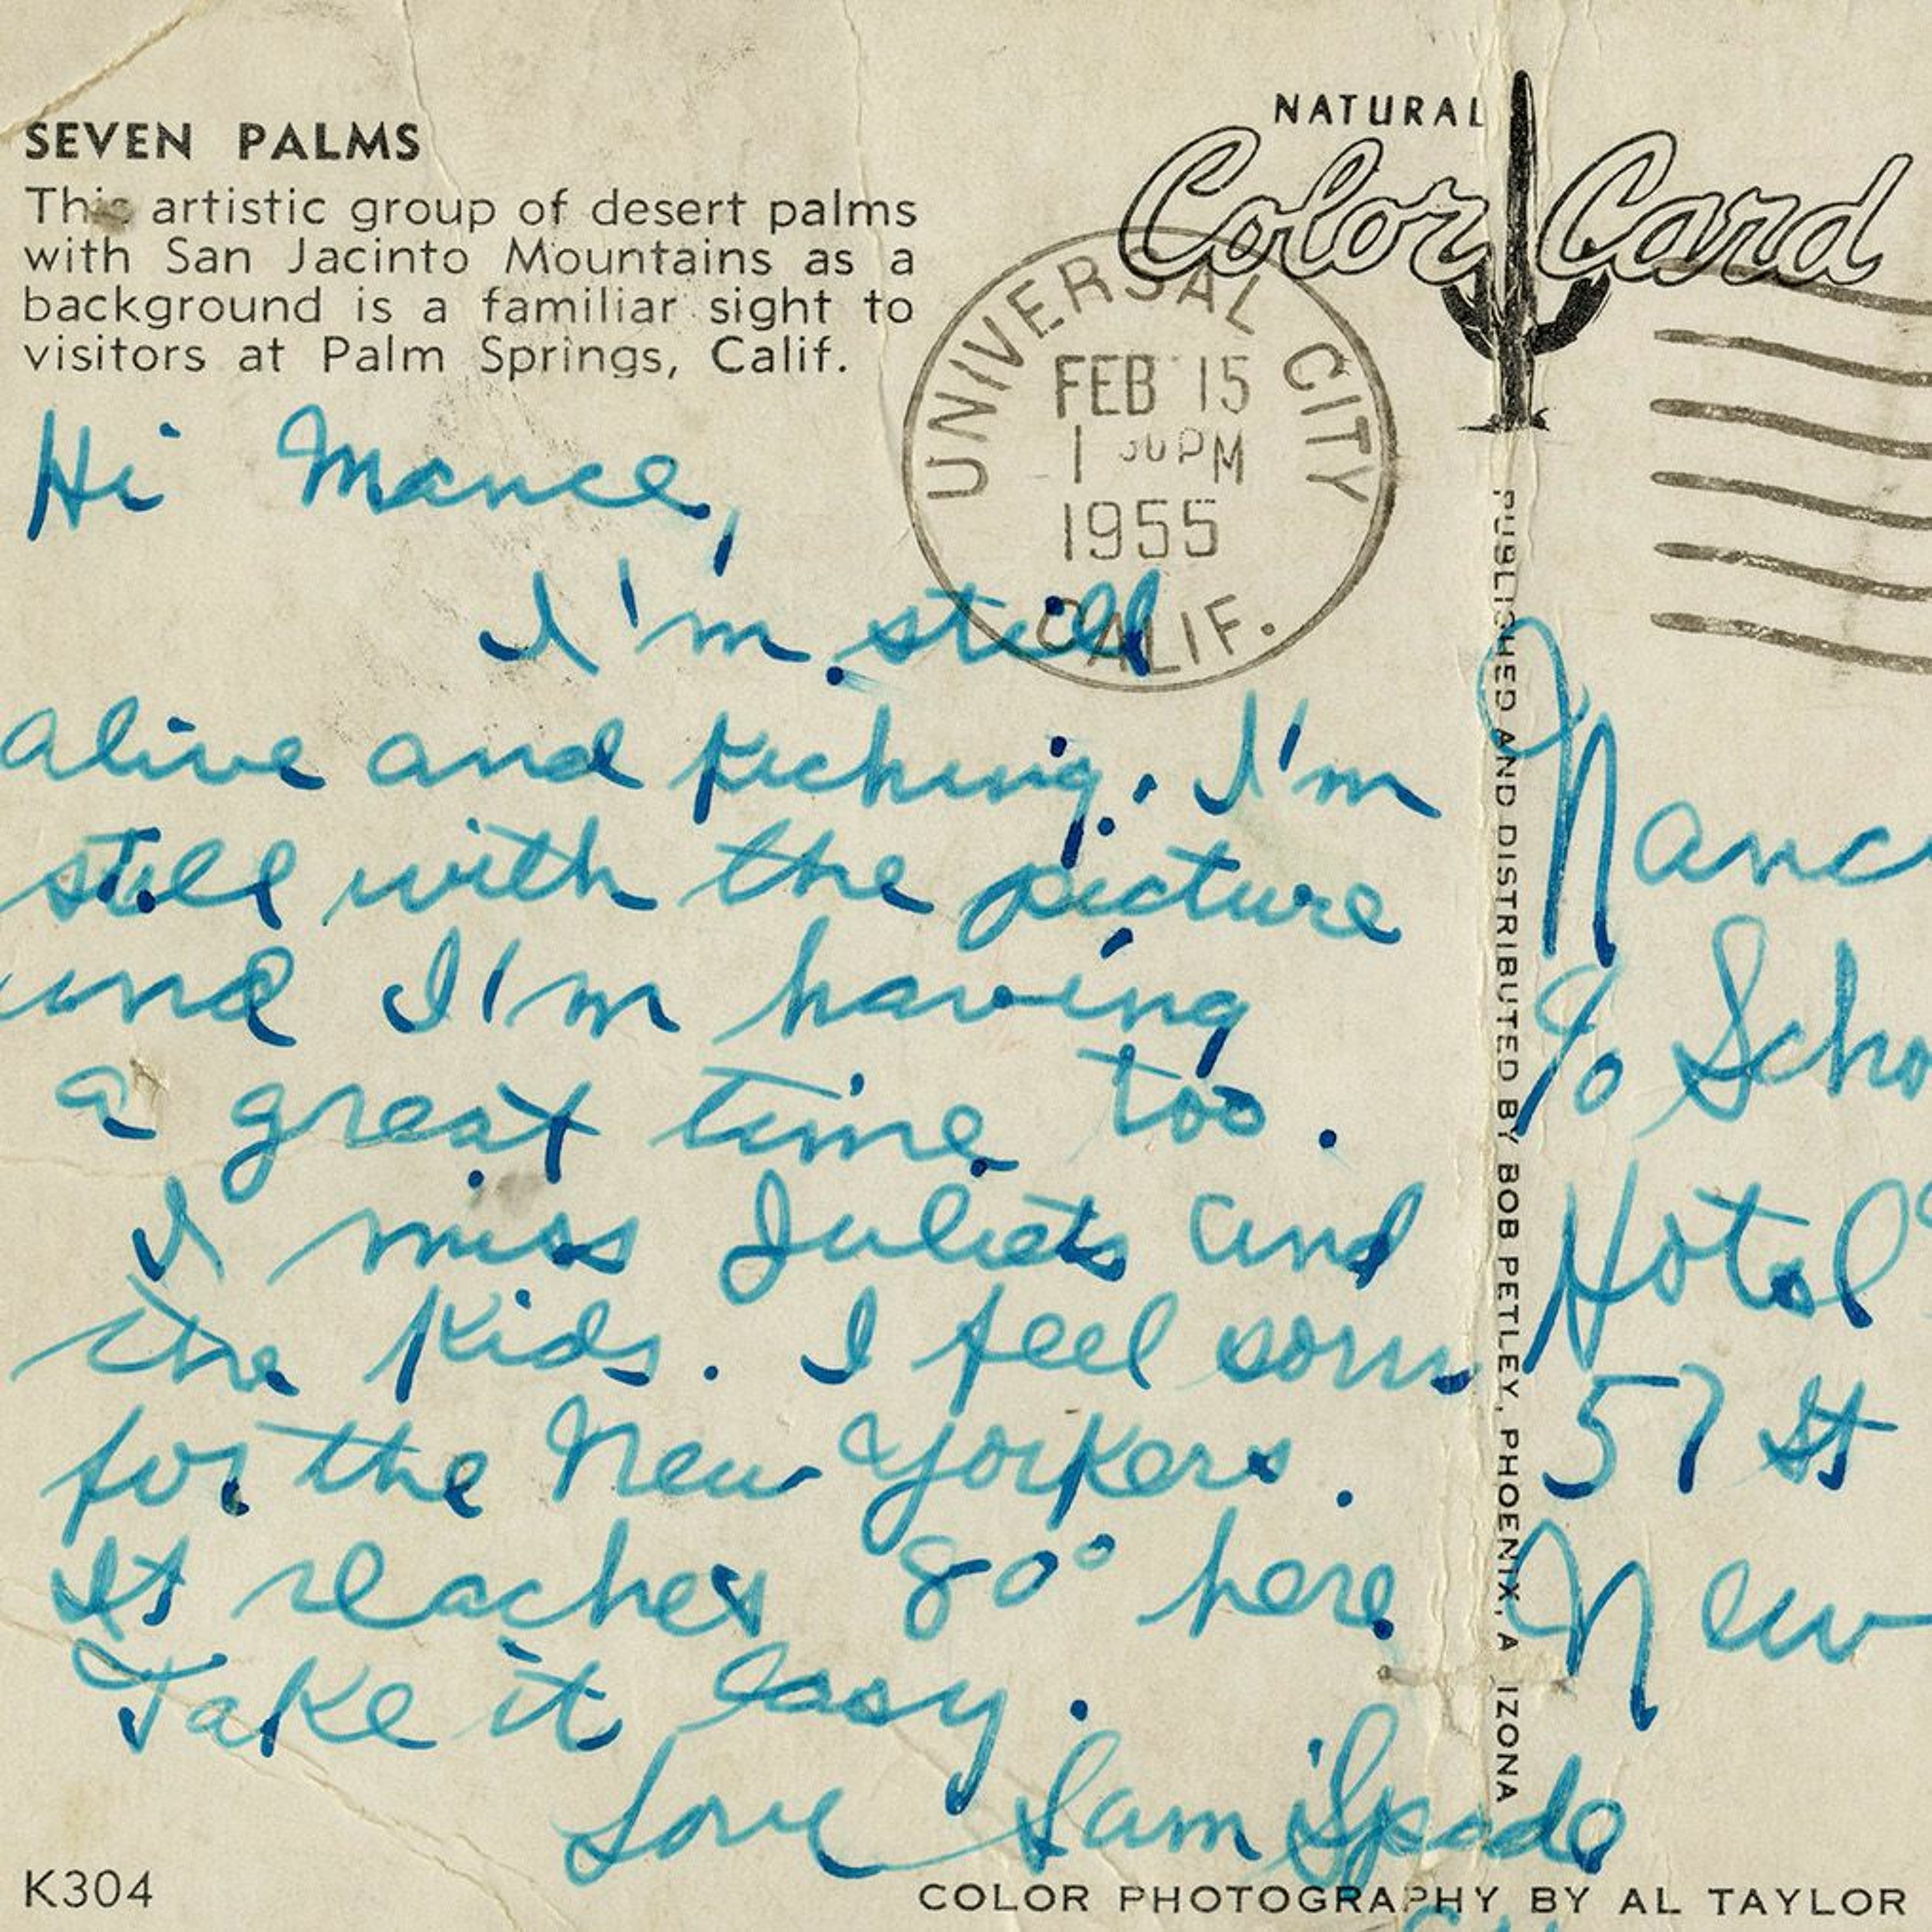 SEVEN PALMS
This artistic group of desert palms
with San Jacinto Mountains as a
background is a familiar sight to
visitors at Palm Springs, Calif.
NATURAL
Color Card
UNIVERSAL CITY
FEB 15
1 30 PM
1955
CALIF.
Hi Mance,
I'm still
alive and kicking. I'm
still with the picture
and I'm having
a great time too.
I miss Juliets and
the kids. I feel
for the New Yorkers.
It reaches 80° here
Take it easy.
Love Sam Spade
PUBLISHED AND DISTRIBUTED BY BOB PETLEY, PHOENIX, A IZONA
Nanc
c/o Scho
Hotel
57 St
New
K304
COLOR PHOTOGRAPHY BY AL TAYLOR